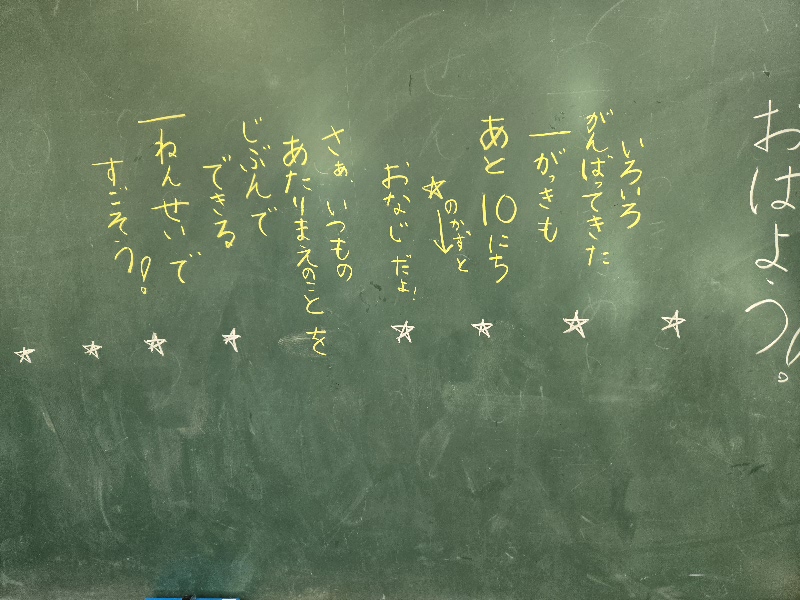 おはよう!
いろいろ
がんばってきた
一がっきも
あと10にち
☆のかずと
おなじだよ!
さぁ、いつもの
あたりまえのことを
じぶんで
できる
一ねんせいで
すごそう!